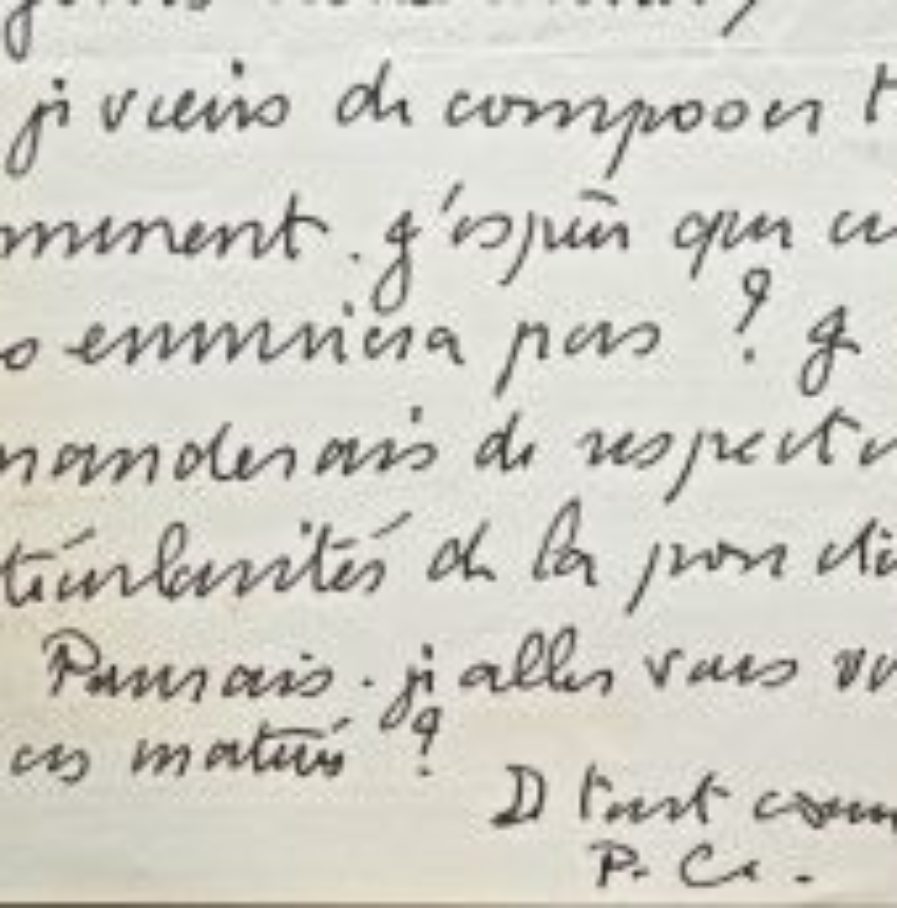 je viens de composer t
mment. J'espère que ce
s ennuiera pas ? Je
manderais de respecte
ticularités de la ponctu
Pourrais-je aller vous vo
ces matins ?
D tout coeu
P. Ce.